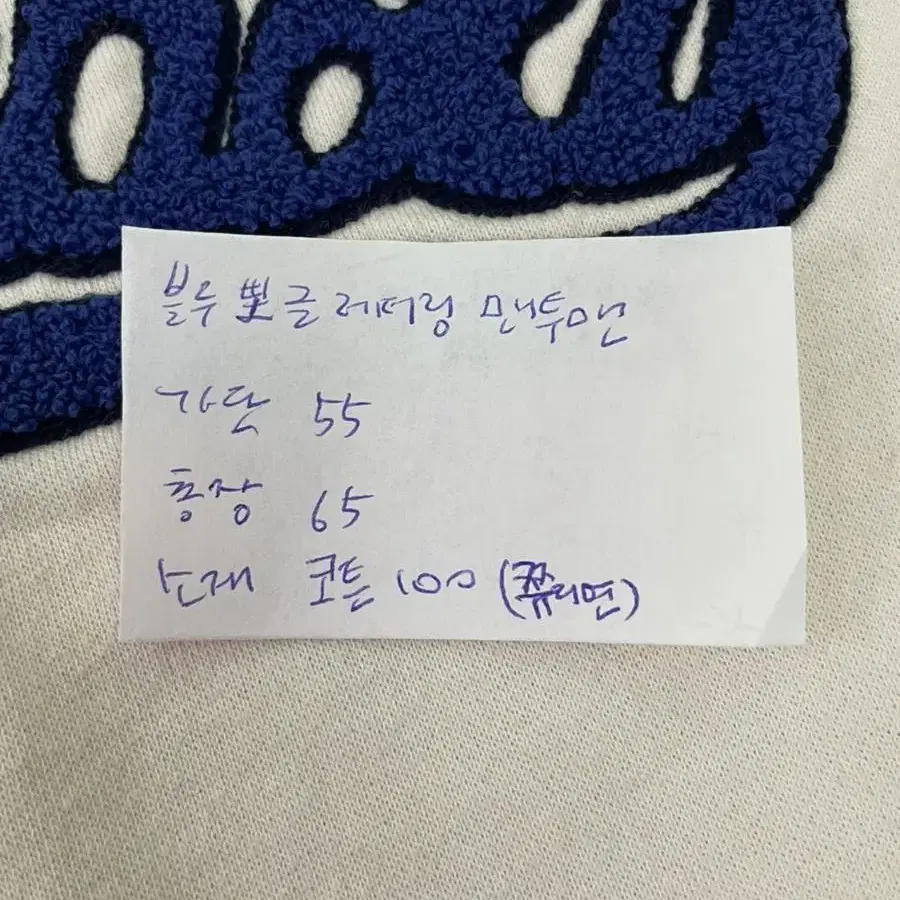 블루 뽀글 레터링 맨투맨
가단 55
총장 65
소재 코튼 100 (쮸리면)